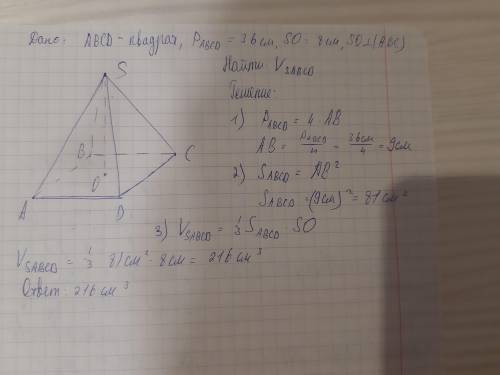 Дано: ABCD - квадрат, P_ABCD = 36 см, SO = 8 см, SO⊥(ABC)
Найти V_SABCD
Решение:
1) P_ABCD = 4 · AB
AB = P_ABCD/4 = 36см/4 = 9см
2) S_ABCD = AB²
S_ABCD = (9см)² = 81 см²
3) V_SABCD = 1/3 S_ABCD · SO
V_SABCD = 1/3 · 81 см² · 8 см = 216 см³
Ответ: 216 см³
S
B
C
O
A
D